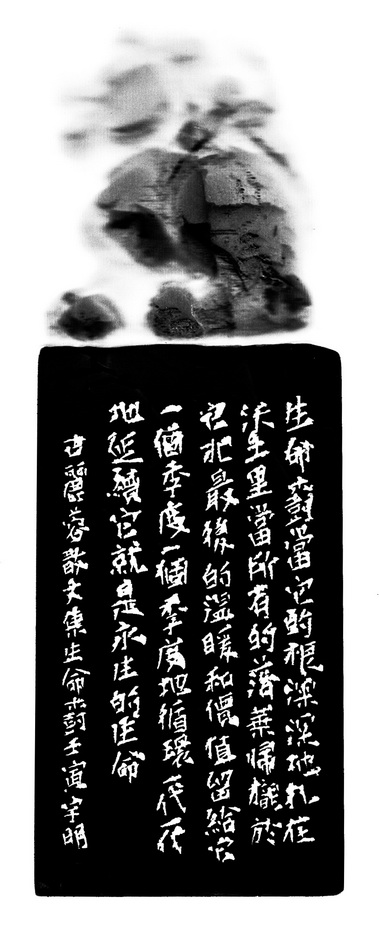 生命樹當它的根深深地扎在
沃土里當所有的落葉歸櫳於
它把最後的溫暖和價值留給它
一個季度一個季度地循環一代一代
地延續它就是永生的生命
古麗蓉散文集生命樹壬寅宇明